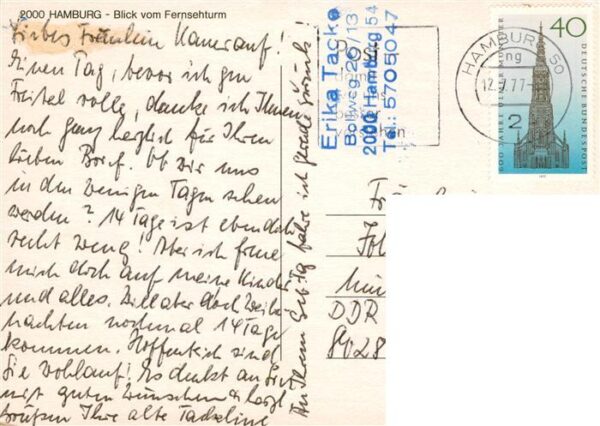 2000 HAMBURG - Blick vom Fernsehturm
Liebes Fräulein Kamerauf!
Einen Tag, bevor ich gen
Freital rolle, danke ich Ihnen
noch ganz herzlich für Ihren
lieben Brief. Ob wir uns
in den wenigen Tagen sehen
werden? 14 Tage ist eben doch
recht wenig! Aber ich freue
mich doch auf meine Kinder
und alles. Will aber doch Weih-
nachten nochmal 14 Tage
kommen. Hoffentlich sind
Sie wohlauf! Es denkt an Sie
mit guten Wünschen & herzl
Grüßen Ihre alte Tackeline
An Ihrem Geb. Tag fahre ich gerade zurück!
Erika Tacke
Bollweg 20/13
2000 Hamburg 54
Tel.: 5705047
HAMBURG 50
ng
12.9.77-
2
40
600 JAHRE ULMER MÜNSTER
DEUTSCHE BUNDESPOST
1977
DDR
8028